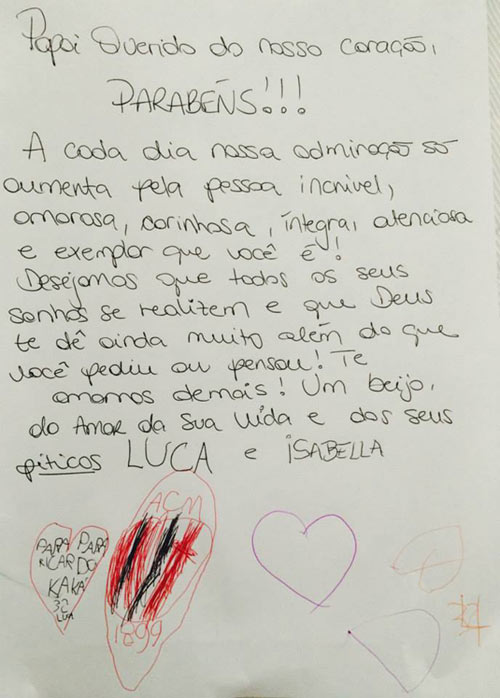 Papai Querido do nosso coração,
PARABÉNS!!!
A cada dia nossa admiração só
aumenta pela pessoa incrível,
amorosa, carinhosa, íntegra, atenciosa
e exemplar que você é!
Desejamos que todos os seus
sonhos se realizem e que Deus
te dê ainda muito além do que
você pediu ou pensou! Te
amamos demais! Um beijo,
do Amor da Sua Vida e dos seus
piticos LUCA e iSABELLA
PARA PARA
RICARDO
KAKÁ
ACM
1899